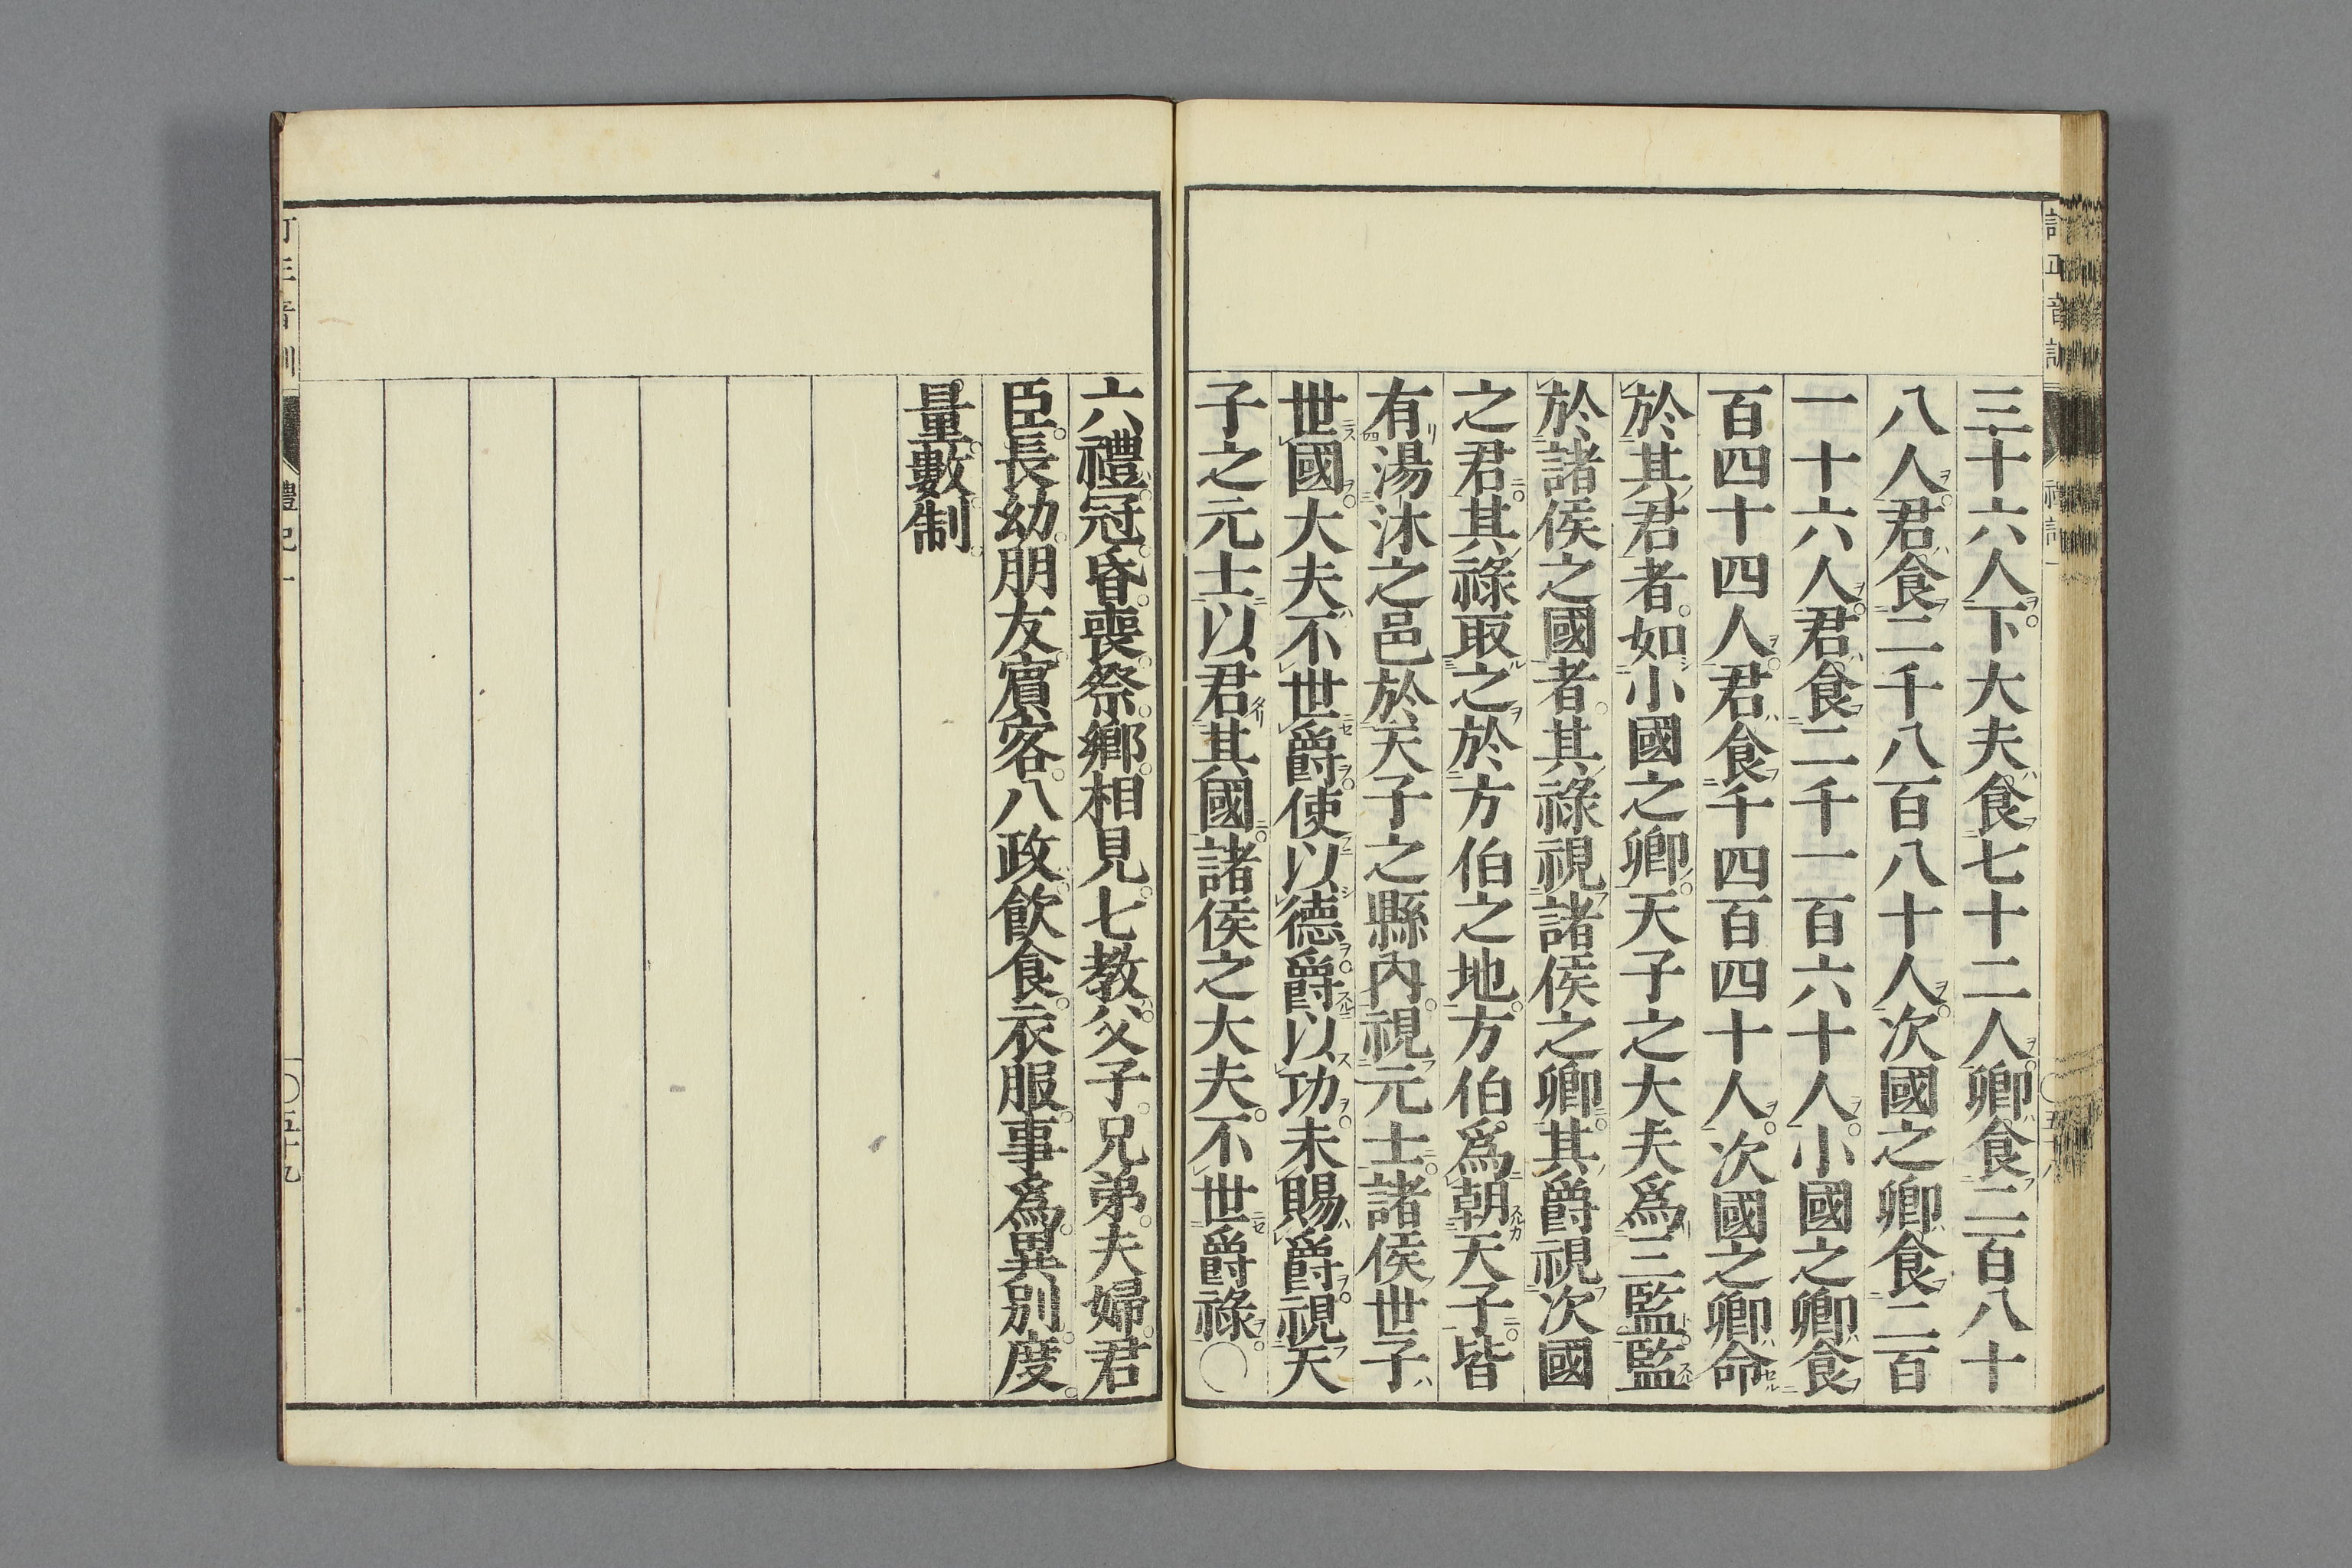 三十六人下大夫食七十二人卿食二百八十
八人君食二千八百八十人次國之卿食二百
一十六人君食二千一百六十人小國之卿食
百四十四人君食千四百四十人次國之卿命
於其君者如小國之卿天子之大夫爲三監監
於諸侯之國者其祿視諸侯之卿其爵視次國
之君其祿取之於方伯之地方伯爲朝天子皆
有湯沐之邑於天子之縣內視元士諸侯世子
世國大夫不世爵使以德爵以功未賜爵視天
子之元士以君其國諸侯之大夫不世爵祿○
六禮冠昏喪祭鄉相見七教父子兄弟夫婦君
臣長幼朋友賓客八政飲食衣服事爲異別度
量數制
禮記一
○五十九